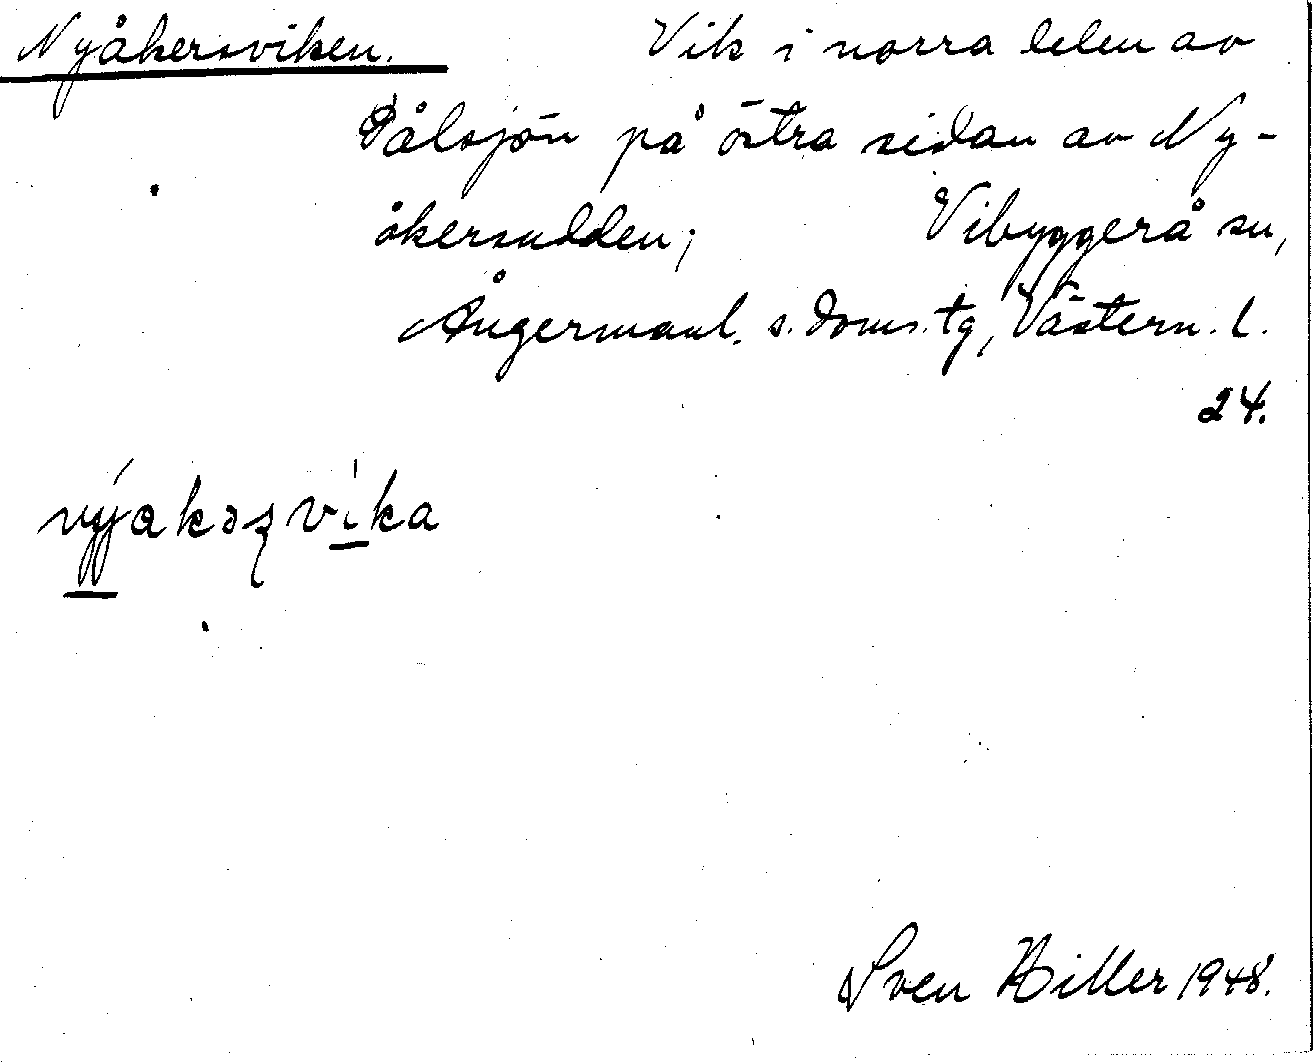 Nyåkersviken. Vik i norra delen av
Pålsjön på östra sidan av Ny-
åkersudden; Vibyggerå sn,
Ångermanl. s. doms. tg, Västern. l.
24.
nýakəʂvika
Sven Hiller 1948.